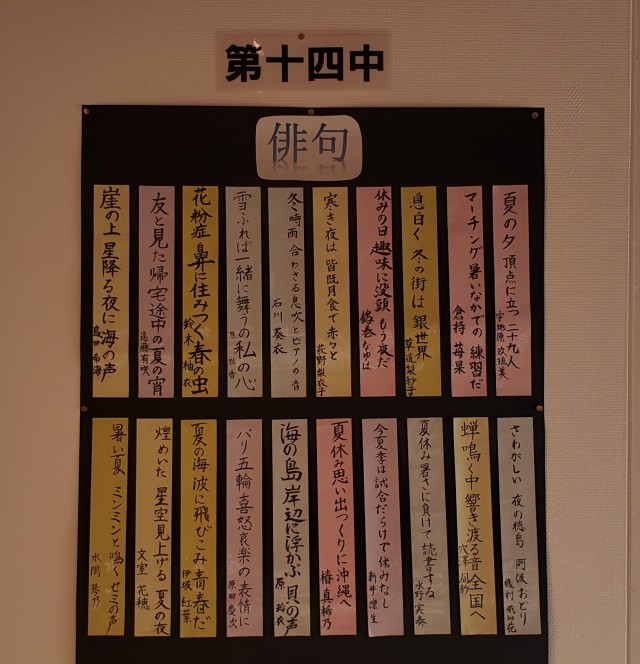 第十四中
俳句
夏の夕 頂点に立つ 二十九人
マーチング 暑いなかでの 練習だ
倉持 苺果
息白く 冬の街は 銀世界
休みの日 趣味に没頭 もう夜だ
寒き夜は 皆既月食で 赤々と
荻野 梨衣子
冬時雨 合わさる息次とピアノの音
石川 葵衣
雪ふれば 一緒に舞うの 私の心
花粉症 鼻に住みつく 春の虫
鈴木 柚衣
友と見た 帰宅途中の 夏の宵
遠藤 有咲
崖の上 星降る夜に 海の声
さわがしい 夜の徳島 阿波おどり
蝉鳴く中 響き渡る音 全国へ
夏休み 暑さに負けて 読書する
水野 実奏
今夏季は 試合だらけで 休みなし
夏休み 思い出つくりに 沖縄へ
椿 真稀乃
海の島 岸辺に浮かぶ 貝の声
原 玲衣
パリ五輪 喜怒哀楽の 表情に
原田 慶次
夏の海 波に飛びこみ 青春だ
伊坂 紅葉
煌めいた 星空見上げる 夏の夜
文室 花穂
暑い夏 ミンミンと鳴く セミの声
水間 琴乃